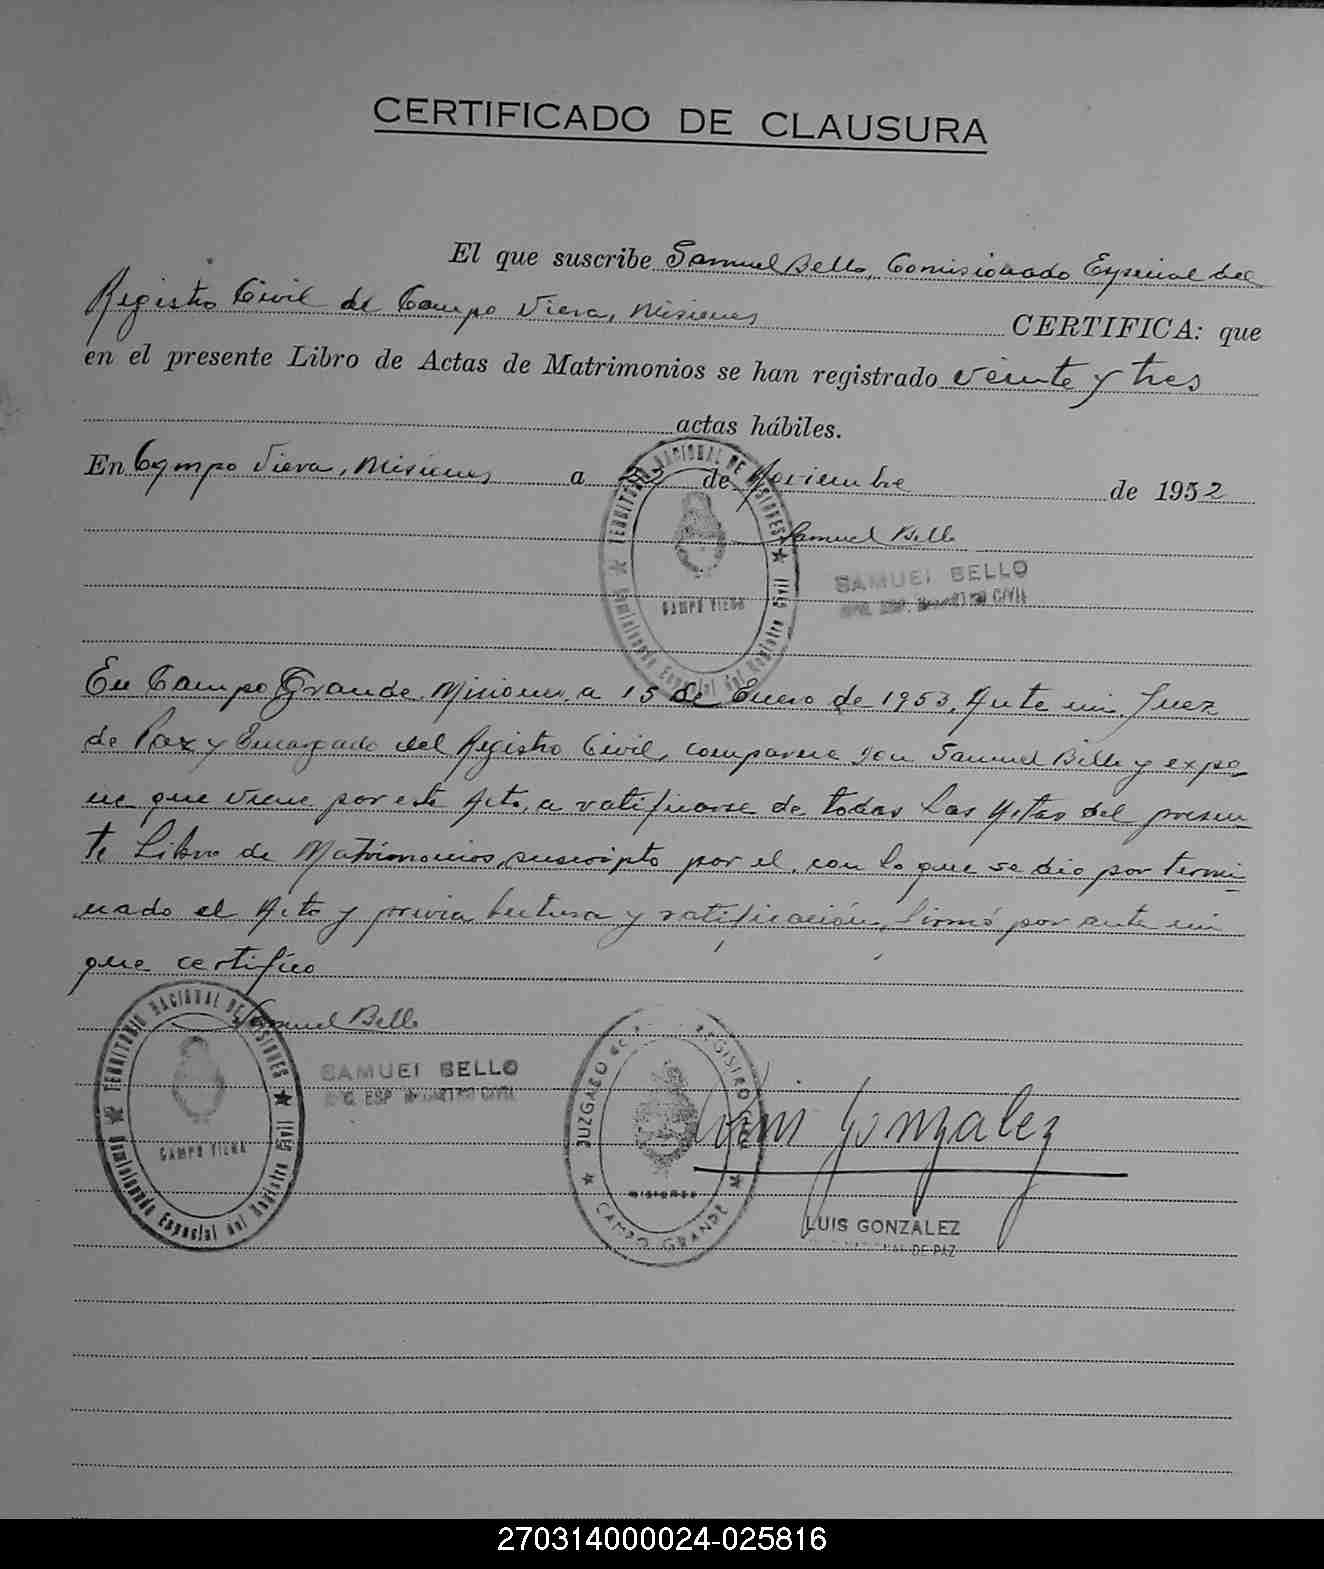 CERTIFICADO DE CLAUSURA
El que suscribe Samuel Bello, Comisionado Especial del
Registro Civil de Campo Viera, Misiones CERTIFICA: que
en el presente Libro de Actas de Matrimonios se han registrado veinte y tres
actas hábiles.
En Campo Viera, Misiones a de Noviembre de 1952
Samuel Bello
TERRITORIO NACIONAL DE MISIONES
CAMPO VIERA
Comisionado Especial del Registro Civil
SAMUEL BELLO
ESP. REGISTRO CIVIL
En Campo Grande Misiones, a 15 de Enero de 1953, Ante mi Juez
de Paz y Encargado del Registro Civil, comparece don Samuel Bello y expo-
ne que viene por este Acto, a ratificarse de todas las Actas del presen-
te Libro de Matrimonios, suscripto por el, con lo que se dio por termi-
nado el Acto y previa lectura y ratificación, firmó por ante mi
que certifico
Samuel Bello
TERRITORIO NACIONAL DE MISIONES
CAMPO VIERA
Comisionado Especial del Registro Civil
SAMUEL BELLO
ESP. REGISTRO CIVIL
JUZGADO DE REGISTRO
MISIONES
CAMPO GRANDE
Luis Gonzalez
LUIS GONZALEZ
DE PAZ
270314000024-025816